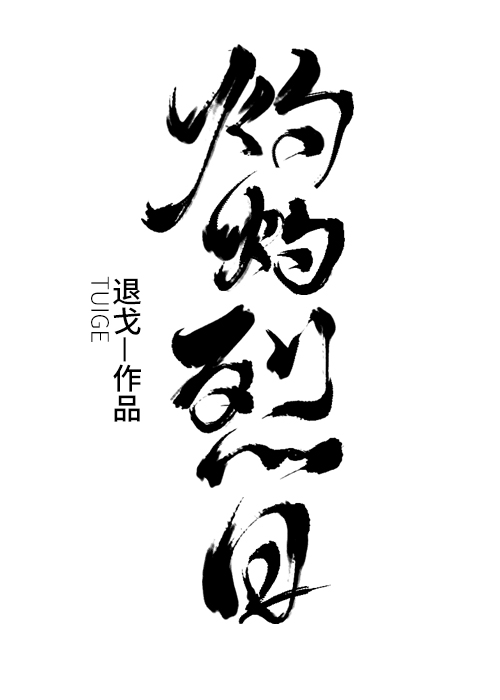 灼灼烈日
退戈—作品
TUIGE